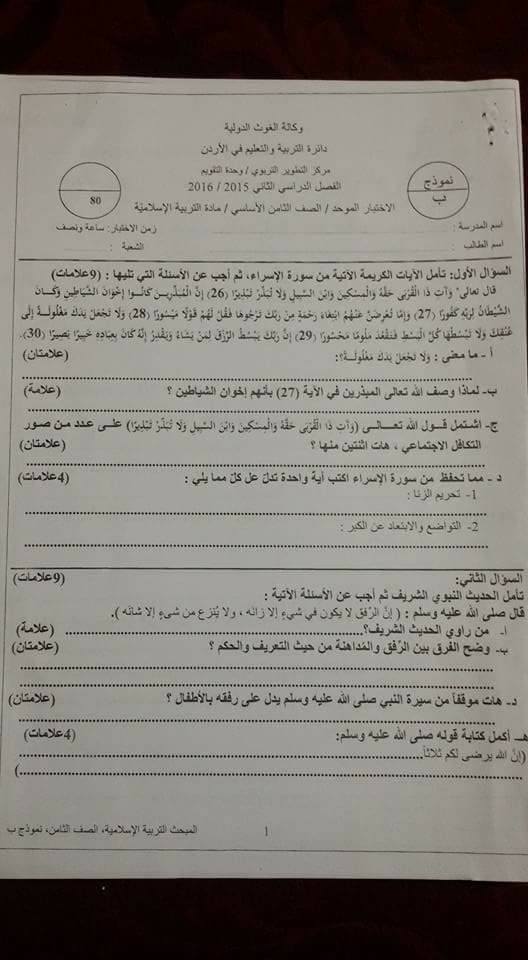 وكالة الغوث الدولية
دائرة التربية والتعليم في الأردن
مركز التطوير التربوي / وحدة التقويم
الفصل الدراسي الثاني 2015 / 2016
الاختبار الموحد / الصف الثامن الأساسي / مادة التربية الإسلامية
نموذج
ب
80
اسم المدرسة :
زمن الاختبار: ساعة ونصف
اسم الطالب :
الشعبة :
السؤال الأول: تأمل الآيات الكريمة الآتية من سورة الإسراء، ثم أجب عن الأسئلة التي تليها : (9علامات)
قال تعالى" وَآتِ ذَا الْقُرْبَى حَقَّهُ وَالْمِسْكِينَ وَابْنَ السَّبِيلِ وَلَا تُبَذِّرْ تَبْذِيرًا (26) إِنَّ الْمُبَذِّرِينَ كَانُوا إِخْوَانَ الشَّيَاطِينِ وَكَانَ
الشَّيْطَانُ لِرَبِّهِ كَفُورًا (27) وَإِمَّا تُعْرِضَنَّ عَنْهُمُ ابْتِغَاءَ رَحْمَةٍ مِنْ رَبِّكَ تَرْجُوهَا فَقُلْ لَهُمْ قَوْلًا مَيْسُورًا (28) وَلَا تَجْعَلْ يَدَكَ مَغْلُولَةً إِلَى
عُنُقِكَ وَلَا تَبْسُطْهَا كُلَّ الْبَسْطِ فَتَقْعُدَ مَلُومًا مَحْسُورًا (29) إِنَّ رَبَّكَ يَبْسُطُ الرِّزْقَ لِمَنْ يَشَاءُ وَيَقْدِرُ إِنَّهُ كَانَ بِعِبَادِهِ خَبِيرًا بَصِيرًا (30).
أ - ما معنى : وَلَا تَجْعَلْ يَدَكَ مَغْلُولَةً؟: (علامتان)
ب- لماذا وصف الله تعالى المبذرين في الآية (27) بأنهم إخوان الشياطين ؟ (علامة)
ج- اشتمل قول الله تعالى (وَآتِ ذَا الْقُرْبَى حَقَّهُ وَالْمِسْكِينَ وَابْنَ السَّبِيلِ وَلَا تُبَذِّرْ تَبْذِيرًا) على عدد من صور
التكافل الاجتماعي ، هات اثنتين منها ؟ (علامتان)
د - مما تحفظ من سورة الإسراء اكتب آية واحدة تدلّ عل كلّ مما يلي : (4علامات)
1- تحريم الزنا :
2- التواضع والابتعاد عن الكبر :
السؤال الثاني: (9علامات)
تأمل الحديث النبوي الشريف ثم أجب عن الأسئلة الآتية :
قال صلى الله عليه وسلم : ( إنّ الرّفق لا يكون في شيءٍ إلا زانه ، ولا يُنزع من شيءٍ إلا شانه ).
ا- من راوي الحديث الشريف؟ (علامة)
ب- وضح الفرق بين الرّفق والمُداهنة من حيث التعريف والحكم ؟ (علامتان)
د- هات موقفاً من سيرة النبي صلى الله عليه وسلم يدل على رفقه بالأطفال ؟ (علامتان)
هـ- أكمل كتابة قوله صلى الله عليه وسلم: (4علامات)
(إنّ الله يرضى لكم ثلاثاً
)
1
المبحث التربية الإسلامية، الصف الثامن، نموذج ب